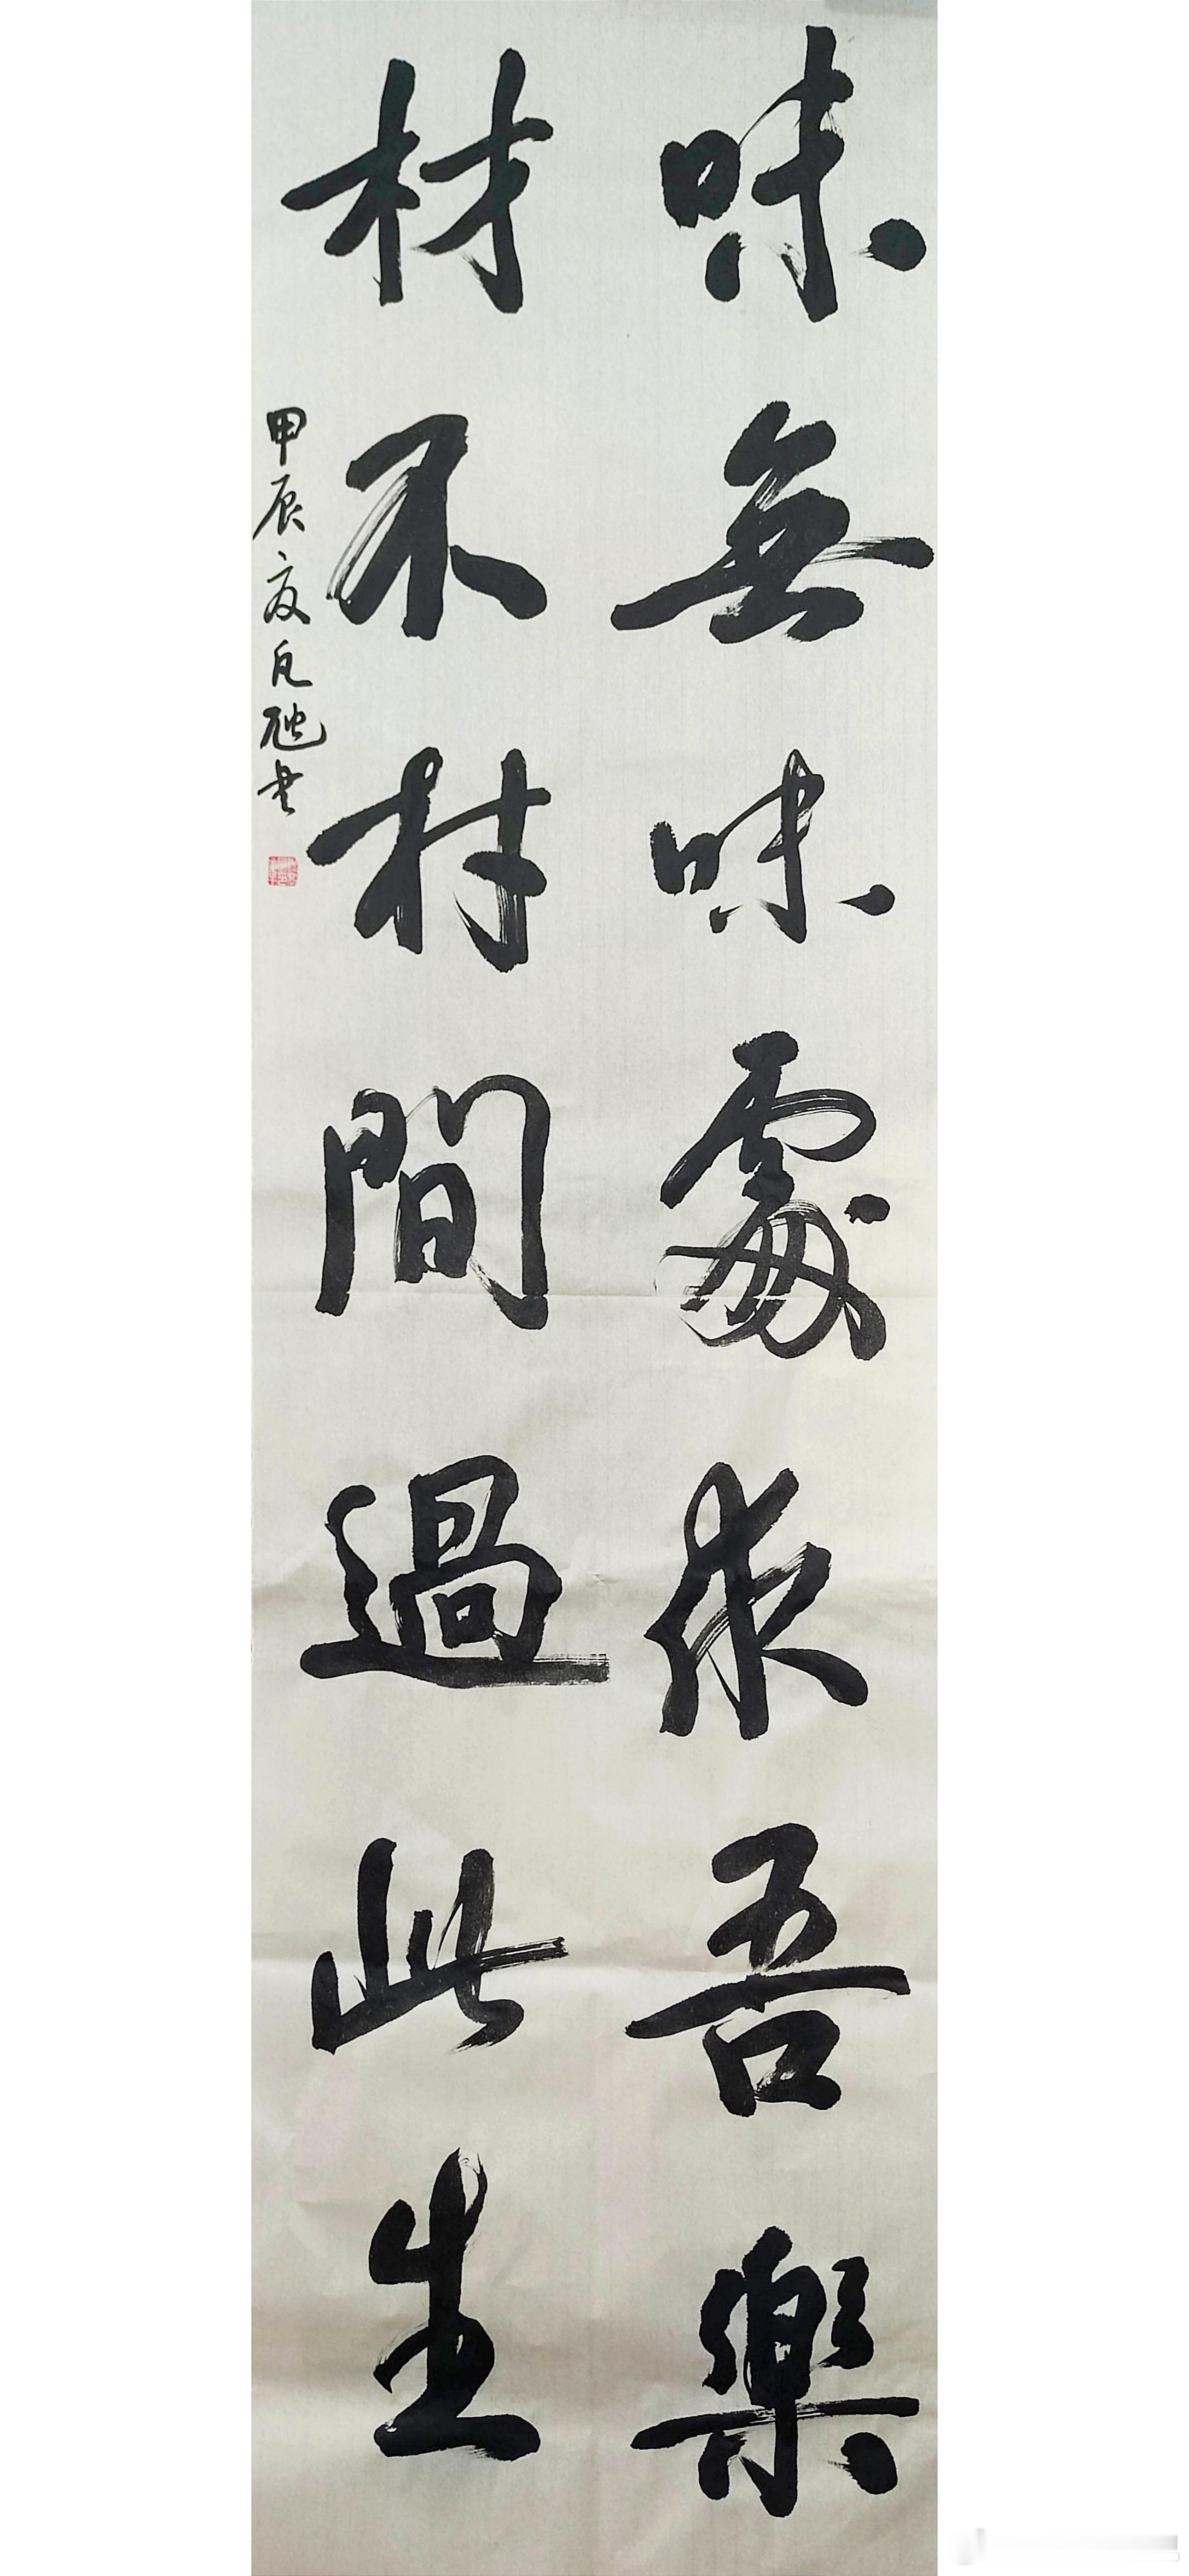 味無味處求吾樂
材不材間過此生
甲辰夏凡書